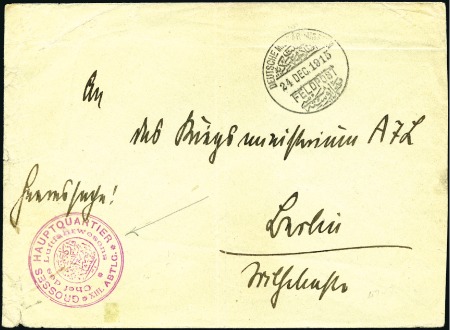 DEUTSCHE
24 DEC. 1915
FELDPOST
An
das Kriegsministerium A7L
Heeressache!
Berlin
Wilhelmstr
GROSSES HAUPTQUARTIER
XIII. ABTLG.
Chef
des
Luftfahrwesens